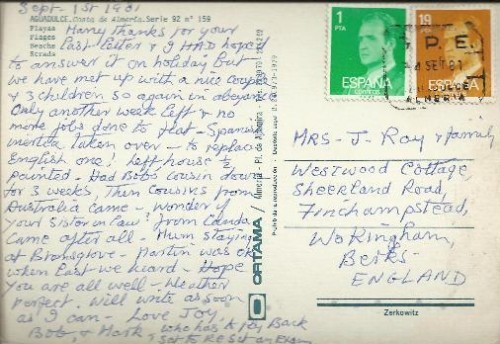 Sept. 1st 1981
AGUADULCE. Costa de Almería. Serie 92 nº 159
Playas
Plages
Beachs
Strada
Many thanks for your
last letter & I HAD hoped
to answer it on holiday But
we have met up with a nice couple
& 3 children so again in abeyance
Only another week left & no
more jobs done to flat - Spanish
inertia taken over - to replace
English one! Left house ½
painted - Had Bob's cousin down
for 3 weeks, Then Cousins from
Australia came - Wonder if
your sister in law from Canada
came after all - Mum staying
at Bromsgrove - Martin was OK
when last we heard - Hope
you are all well. Weather
perfect. Will write as soon
as I can - Love Joy,
Bob, & Mark, who has to fly Back
ORTAMA
Prohibida la reproducción
1
PTA
ESPAÑA
CORREOS
19
PTAS
ESPAÑA
P. E.
4 SET 81
ALMERIA
MRS - J - Roy & family
Westwood Cottage,
Sheerland Road,
Finchampstead,
Wokingham,
Berks -
ENGLAND
Zerkowitz